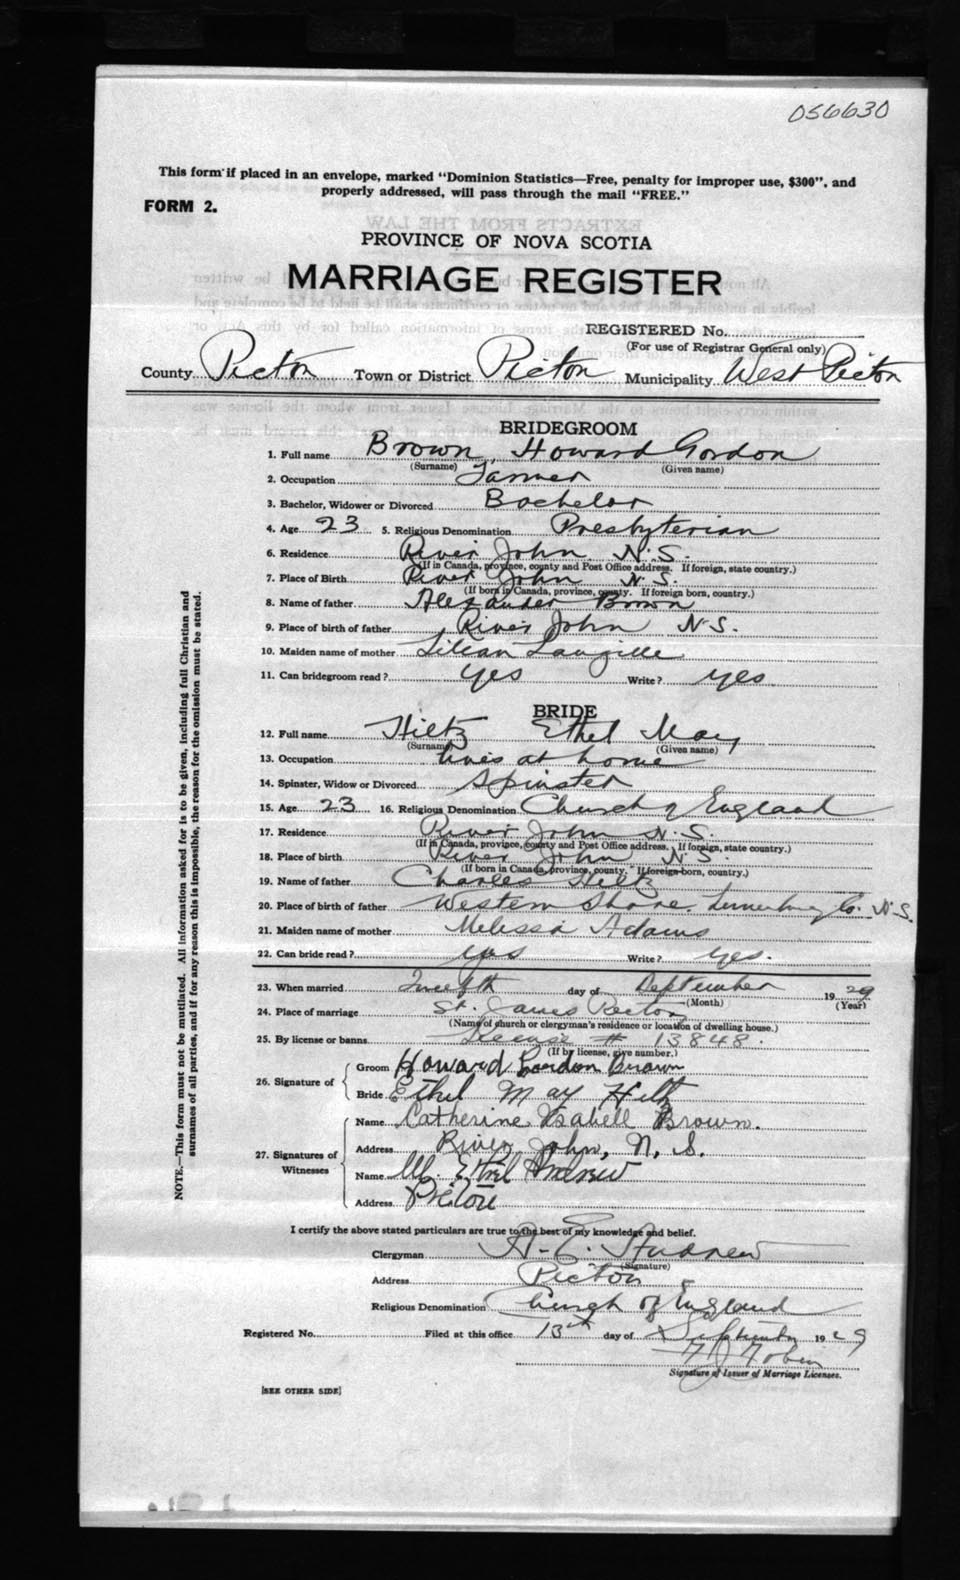 056630
This form if placed in an envelope, marked "Dominion Statistics—Free, penalty for improper use, $300", and
properly addressed, will pass through the mail "FREE."
FORM 2.
PROVINCE OF NOVA SCOTIA
MARRIAGE REGISTER
REGISTERED No.
(For use of Registrar General only)
County Pictou Town or District Pictou Municipality West Pictou
BRIDEGROOM
1. Full name Brown, Howard Gordon
(Surname) (Given name)
2. Occupation Farmer
3. Bachelor, Widower or Divorced Bachelor
4. Age 23 5. Religious Denomination Presbyterian
6. Residence River John N.S.
(If in Canada, province, county and Post Office address. If foreign, state country.)
7. Place of Birth River John N.S.
(If born in Canada, province, county. If foreign born, country.)
8. Name of father Alexander Brown
9. Place of birth of father River John N.S.
10. Maiden name of mother Lilian Langille
11. Can bridegroom read? yes Write? yes
BRIDE
12. Full name Hiltz Ethel May
(Surname) (Given name)
13. Occupation lives at home
14. Spinster, Widow or Divorced Spinster
15. Age 23 16. Religious Denomination Church of England
17. Residence River John N.S.
(If in Canada, province, county and Post Office address. If foreign, state country.)
18. Place of birth River John N.S.
(If born in Canada, province, county. If foreign-born, country.)
19. Name of father Charles Hiltz
20. Place of birth of father Western Shore. Lunenburg Co. N.S.
21. Maiden name of mother Melissa Adams
22. Can bride read? yes Write? yes.
23. When married Twelfth day of September 1929
(Month) (Year)
24. Place of marriage St. James Pictou
(Name of church or clergyman's residence or location of dwelling house.)
25. By license or banns License # 13848.
(If by license, give number.)
26. Signature of Groom Howard Gordon Brown
Bride Ethel May Hiltz
27. Signatures of Witnesses Name Catherine Isabell Brown.
Address River John, N. S.
Name M. Ethel Andrew
Address Pictou
I certify the above stated particulars are true to the best of my knowledge and belief.
Clergyman A. E. Andrew
(Signature)
Address Pictou
Religious Denomination Church of England
Registered No. Filed at this office 13th day of September 1929
Tobin
Signature of Issuer of Marriage Licenses.
[SEE OTHER SIDE]
NOTE.—This form must not be mutilated. All information asked for is to be given, including full Christian and
surnames of all parties, and if for any reason this is impossible, the reason for the omission must be stated.